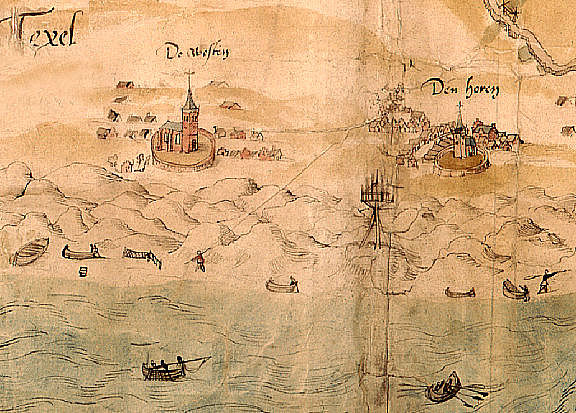 Texel
De Westen
Den horen